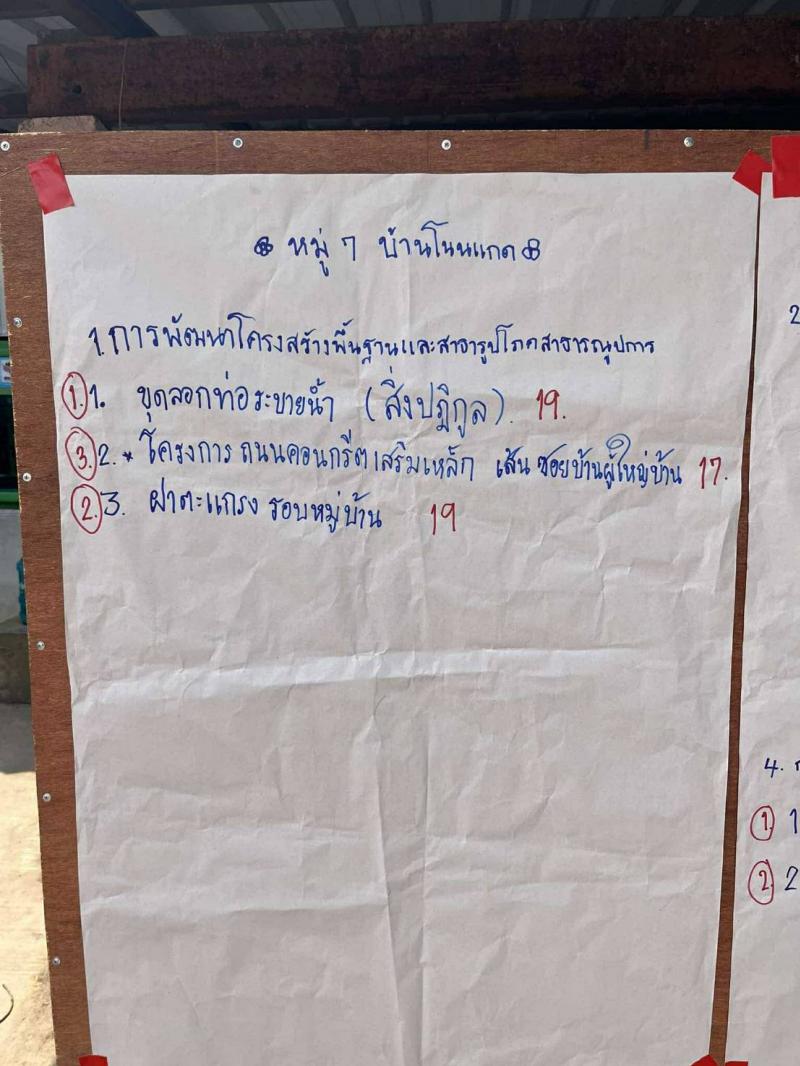 หมู่ 7 บ้านโนนแกด
1.การพัฒนาโครงสร้างพื้นฐานและสาธารูปโภคสาธารณุปการ
1. 1. ขุดลอกท่อระบายน้ำ (สิ่งปฏิกูล). 19.
3. 2. * โครงการ ถนนคอนกรีตเสริมเหล็ก เส้น ซอยบ้านผู้ใหญ่บ้าน 17.
2. 3. ฝาตะแกรง รอบหมู่บ้าน 19
2
4. ก
1 1
2. 2